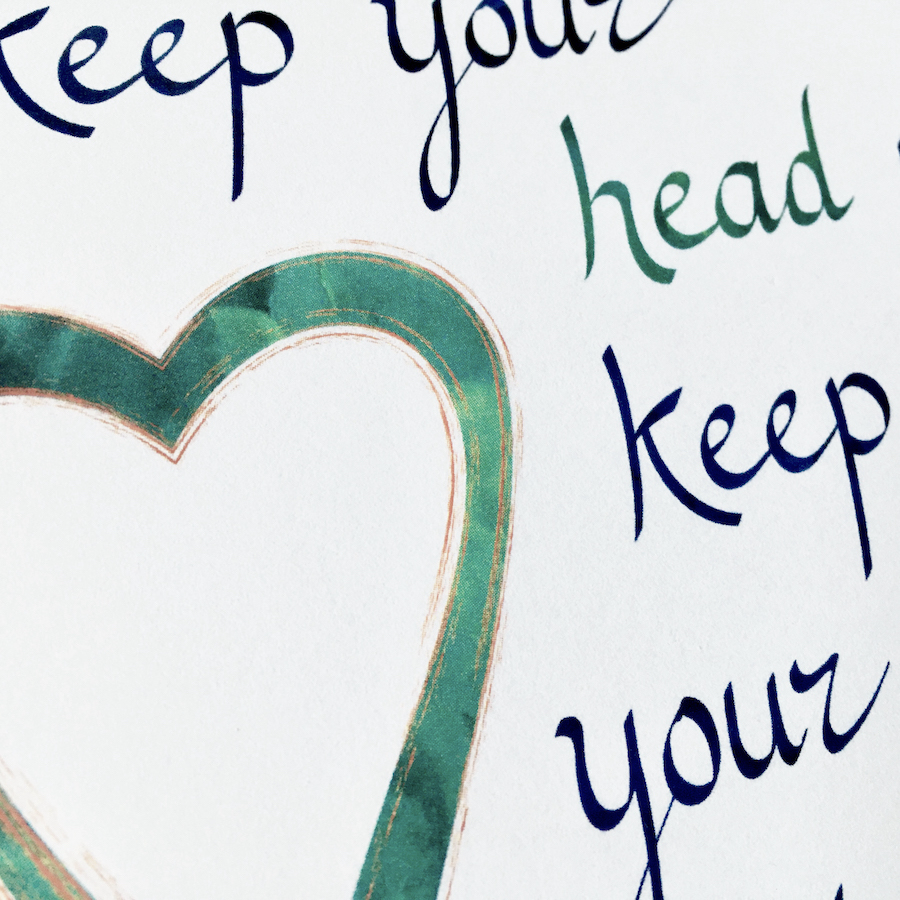 keep your
head
keep
your